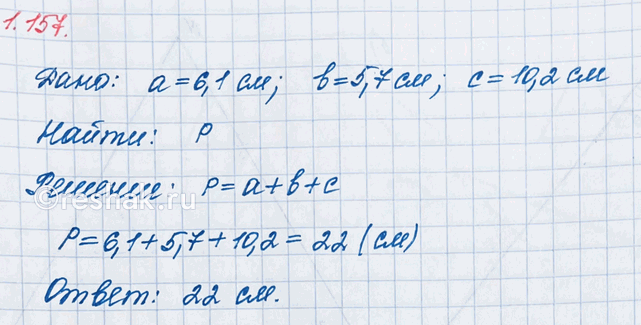 1.157.
Дано: a = 6,1 см; b = 5,7 см; c = 10,2 см
Найти: P
Решение: P = a + b + c
©reshak.ru
P = 6,1 + 5,7 + 10,2 = 22 (см)
Ответ: 22 см.